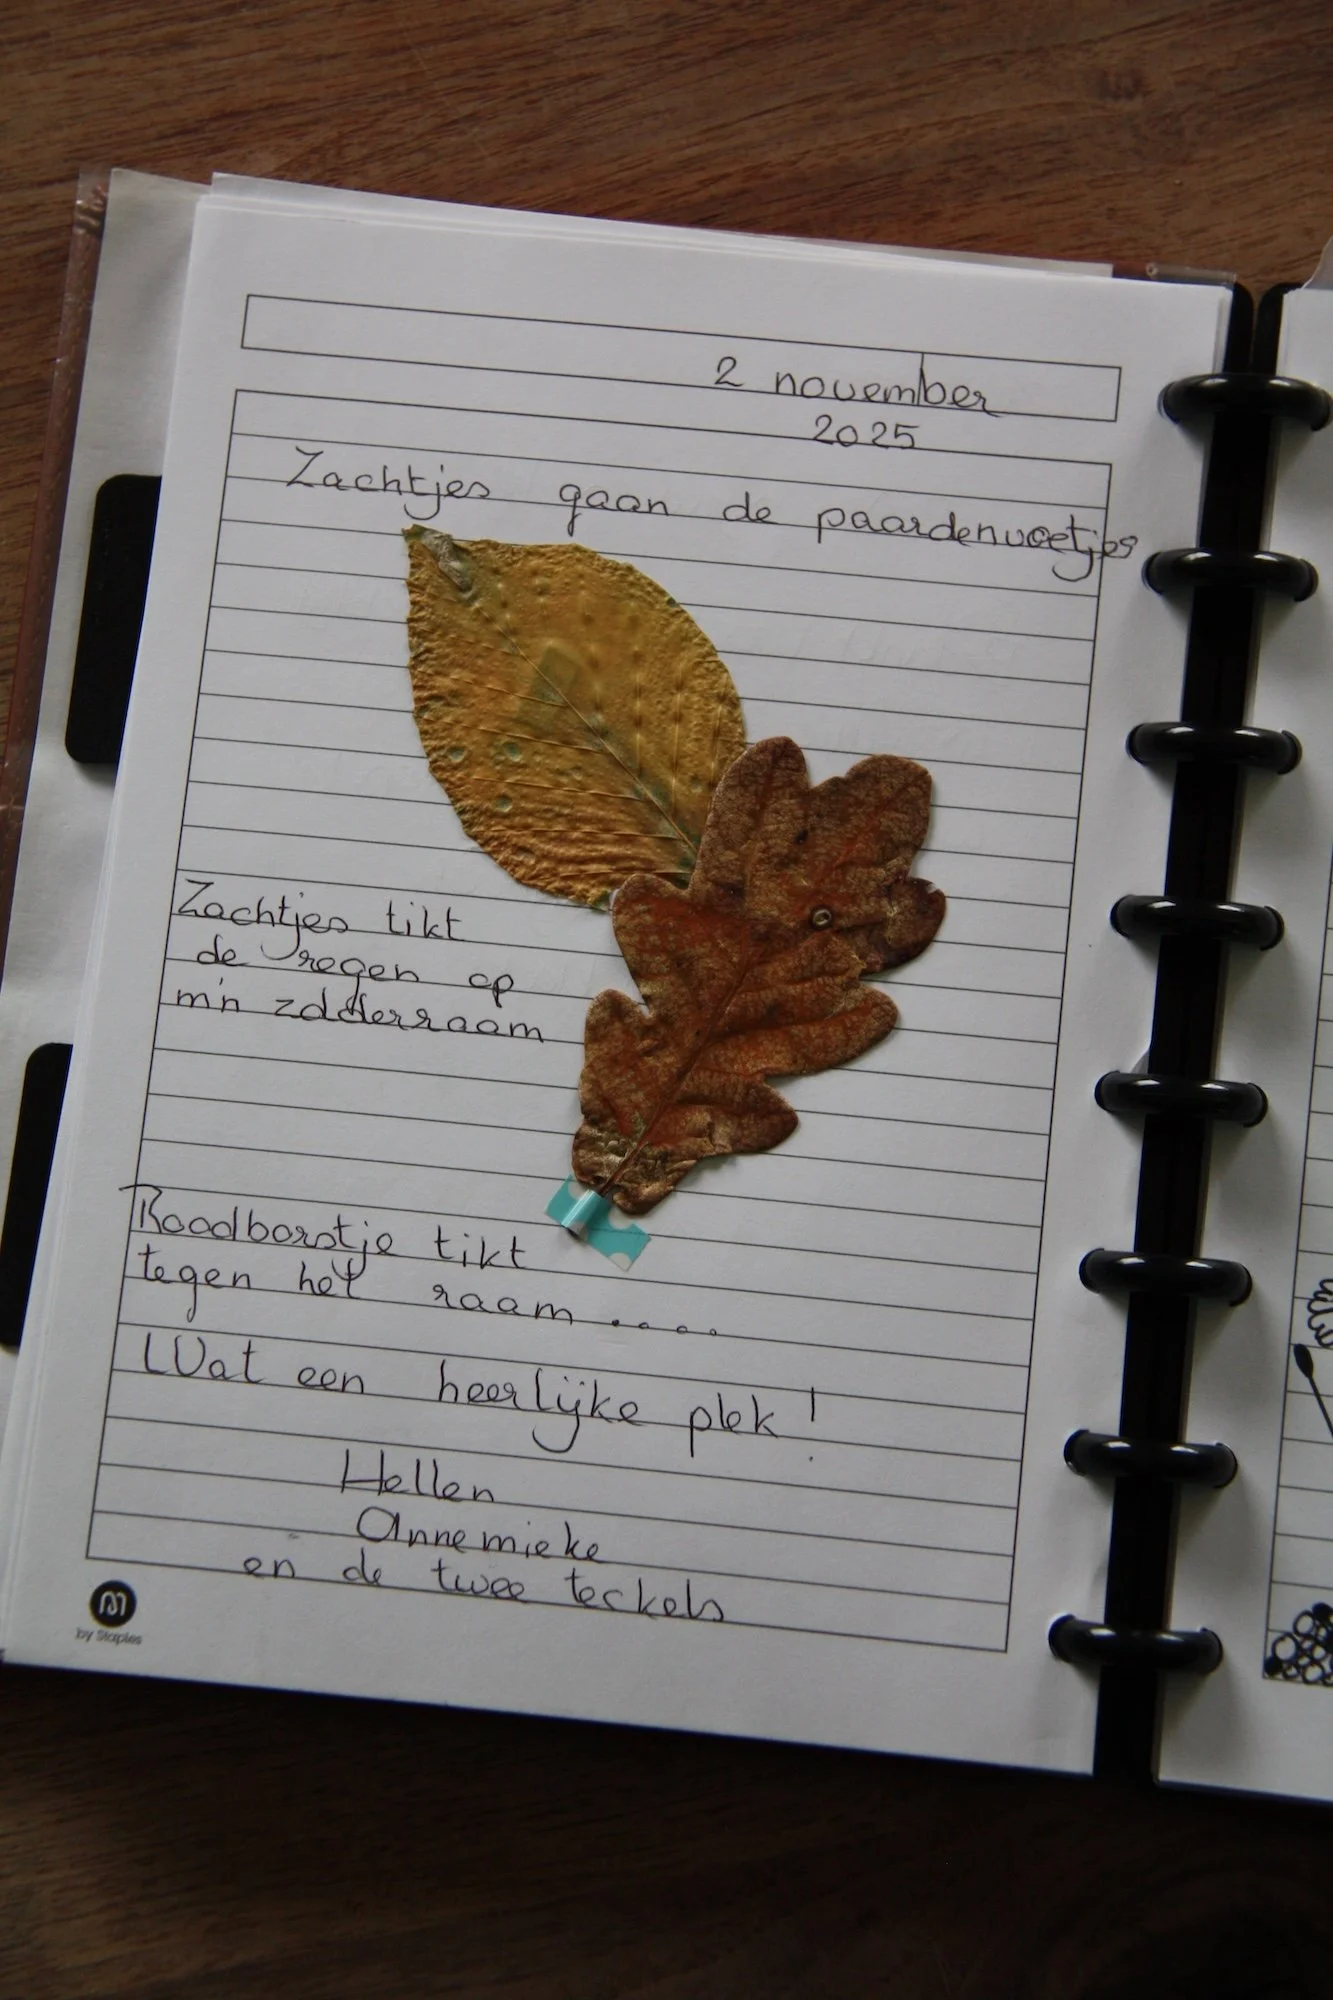 2 november
2025
Zachtjes gaan de paardenvoetjes
Zachtjes tikt
de regen op
m'n zolderraam
Roodborstje tikt
tegen het raam....
Wat een heerlijke plek!
Hellen
Annemieke
en de twee teckels
M
by Staples